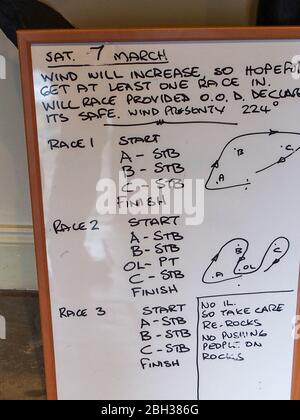 SAT. 7 MARCH
WIND WILL INCREASE, SO HOPEFU
GET AT LEAST ONE RACE IN.
WILL RACE PROVIDED O.O.D. DECLAR
ITS SAFE. WIND PRESENTLY 224°
RACE 1 START
A - STB
B - STB
C - STB
FINISH
B
C
A
RACE 2 START
A - STB
B - STB
OL - PT
C - STB
FINISH
B
C
A
OL
RACE 3 START
A - STB
B - STB
C - STB
FINISH
NO IL.
SO TAKE CARE
RE-ROCKS
NO PUSHING
PEOPLE ON
ROCKS
alamy
Image ID: 2BH386G
www.alamy.com